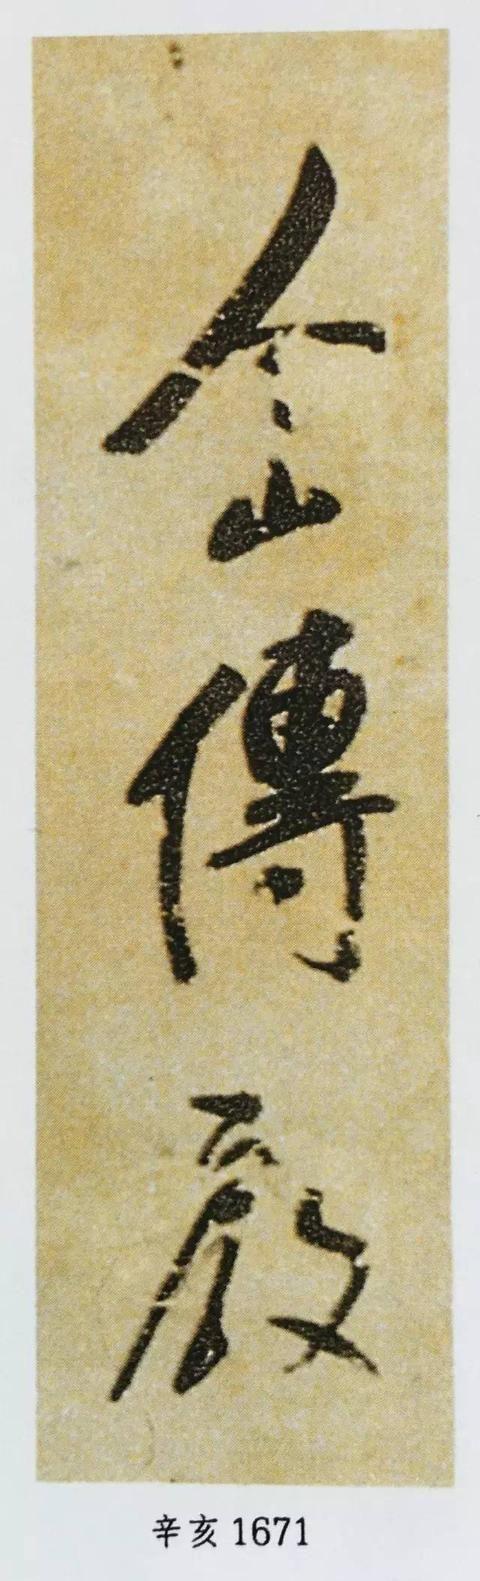 个山傳綮
辛亥 1671